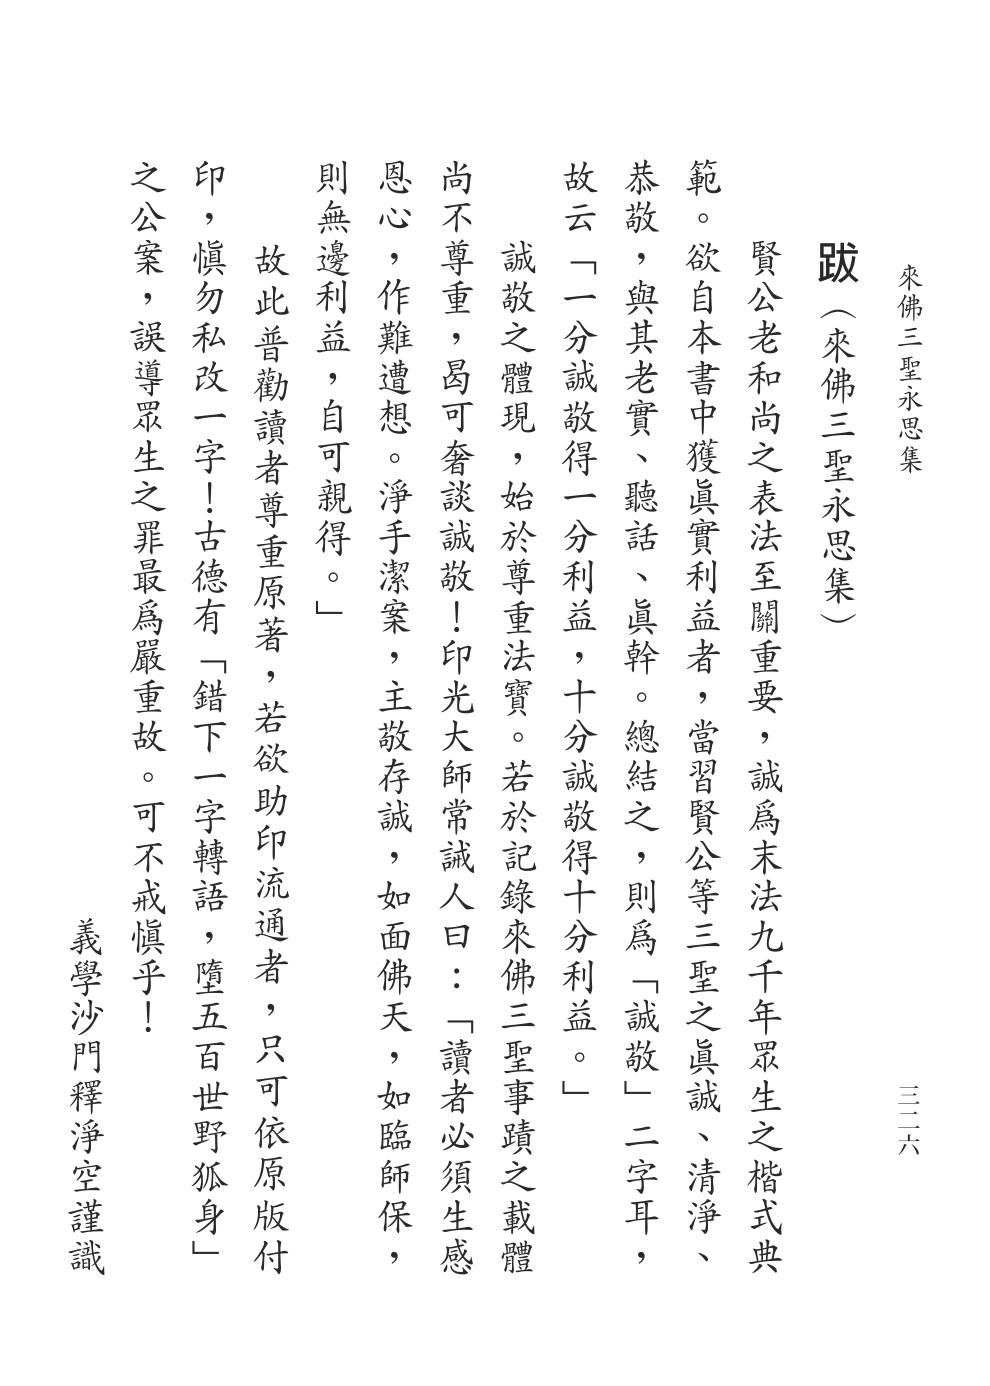 來佛三聖永思集
三二六
跋（來佛三聖永思集）
賢公老和尚之表法至關重要，誠爲末法九千年眾生之楷式典
範。欲自本書中獲眞實利益者，當習賢公等三聖之眞誠、清淨、
恭敬，與其老實、聽話、眞幹。總結之，則爲「誠敬」二字耳，
故云「一分誠敬得一分利益，十分誠敬得十分利益。」
誠敬之體現，始於尊重法寶。若於記錄來佛三聖事蹟之載體
尚不尊重，曷可奢談誠敬！印光大師常誡人曰：「讀者必須生感
恩心，作難遭想。淨手潔案，主敬存誠，如面佛天，如臨師保，
則無邊利益，自可親得。」
故此普勸讀者尊重原著，若欲助印流通者，只可依原版付
印，愼勿私改一字！古德有「錯下一字轉語，墮五百世野狐身」
之公案，誤導眾生之罪最爲嚴重故。可不戒愼乎！
義學沙門釋淨空謹識